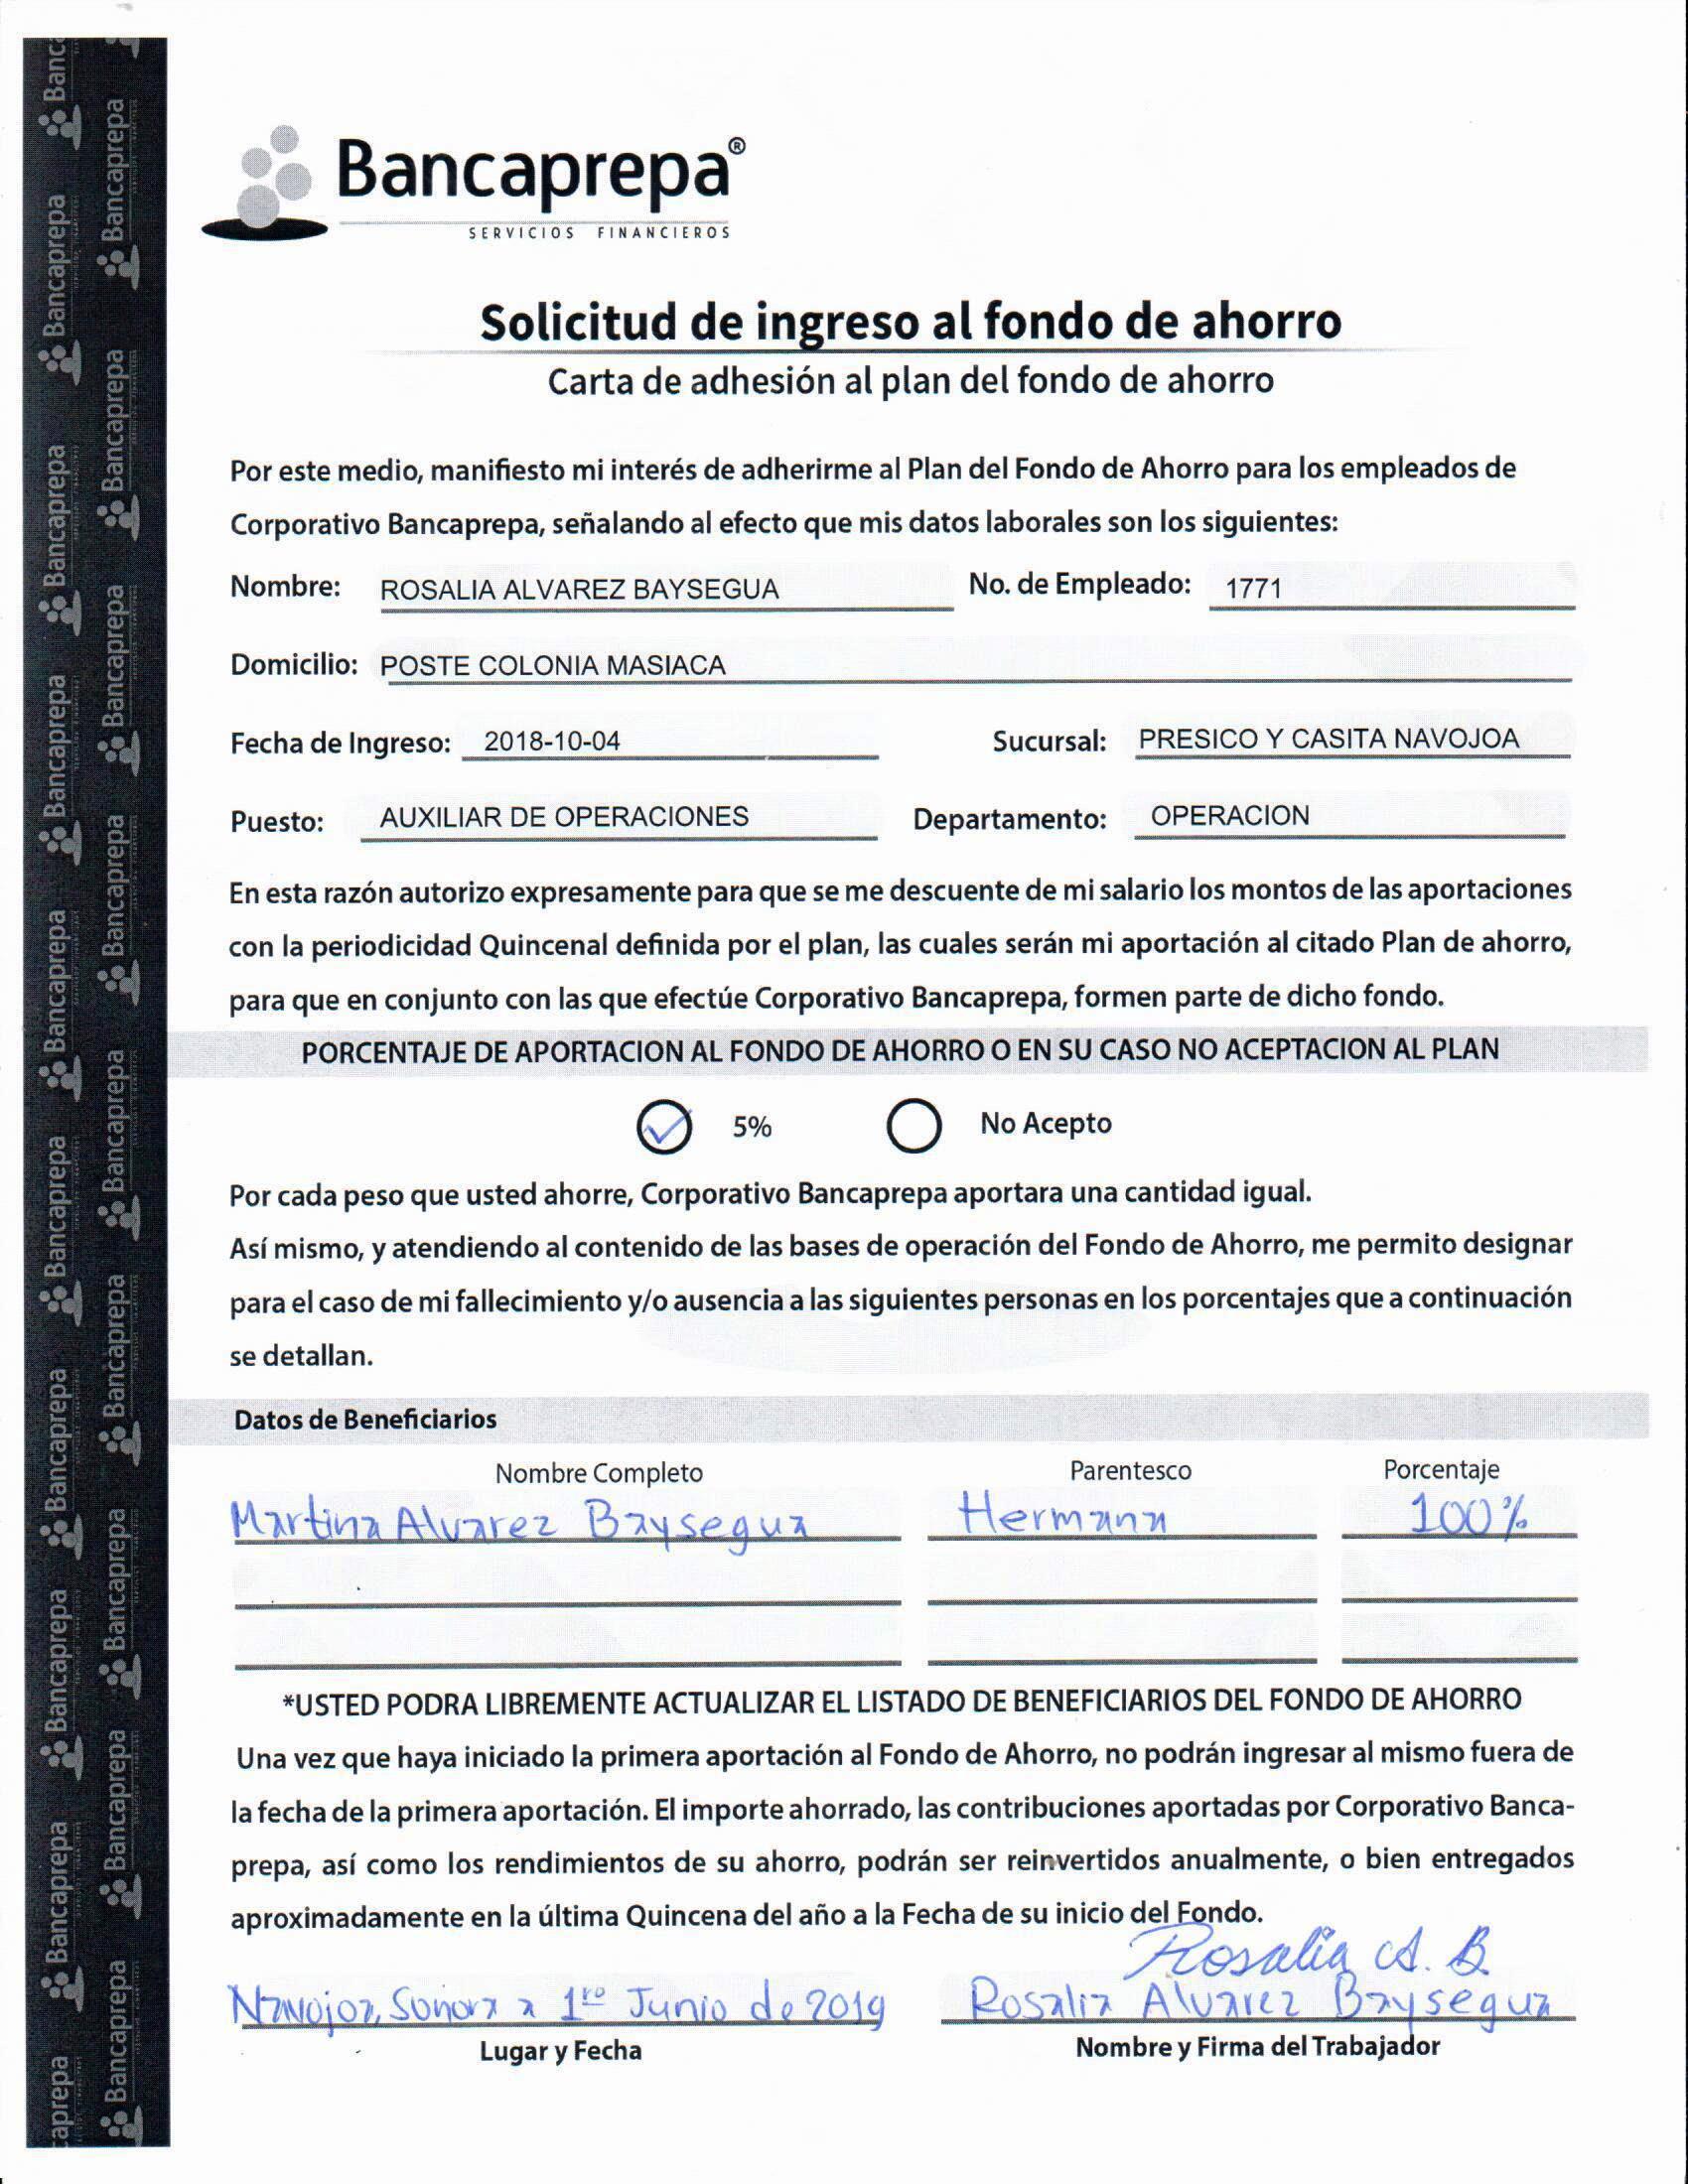 Bancaprepa®
SERVICIOS FINANCIEROS
Solicitud de ingreso al fondo de ahorro
Carta de adhesión al plan del fondo de ahorro
Por este medio, manifiesto mi interés de adherirme al Plan del Fondo de Ahorro para los empleados de
Corporativo Bancaprepa, señalando al efecto que mis datos laborales son los siguientes:
Nombre: ROSALIA ALVAREZ BAYSEGUA No. de Empleado: 1771
Domicilio: POSTE COLONIA MASIACA
Fecha de Ingreso: 2018-10-04 Sucursal: PRESICO Y CASITA NAVOJOA
Puesto: AUXILIAR DE OPERACIONES Departamento: OPERACION
En esta razón autorizo expresamente para que se me descuente de mi salario los montos de las aportaciones
con la periodicidad Quincenal definida por el plan, las cuales serán mi aportación al citado Plan de ahorro,
para que en conjunto con las que efectúe Corporativo Bancaprepa, formen parte de dicho fondo.
PORCENTAJE DE APORTACION AL FONDO DE AHORRO O EN SU CASO NO ACEPTACION AL PLAN
5% No Acepto
Por cada peso que usted ahorre, Corporativo Bancaprepa aportara una cantidad igual.
Así mismo, y atendiendo al contenido de las bases de operación del Fondo de Ahorro, me permito designar
para el caso de mi fallecimiento y/o ausencia a las siguientes personas en los porcentajes que a continuación
se detallan.
Datos de Beneficiarios
Nombre Completo Parentesco Porcentaje
Martina Alvarez Baysegua Hermana 100%
*USTED PODRA LIBREMENTE ACTUALIZAR EL LISTADO DE BENEFICIARIOS DEL FONDO DE AHORRO
Una vez que haya iniciado la primera aportación al Fondo de Ahorro, no podrán ingresar al mismo fuera de
la fecha de la primera aportación. El importe ahorrado, las contribuciones aportadas por Corporativo Banca-
prepa, así como los rendimientos de su ahorro, podrán ser reinvertidos anualmente, o bien entregados
aproximadamente en la última Quincena del año a la Fecha de su inicio del Fondo.
Rosalia A. B.
Navojoa, Sonora a 1ro Junio de 2019 Rosalia Alvarez Baysegua
Lugar y Fecha Nombre y Firma del Trabajador